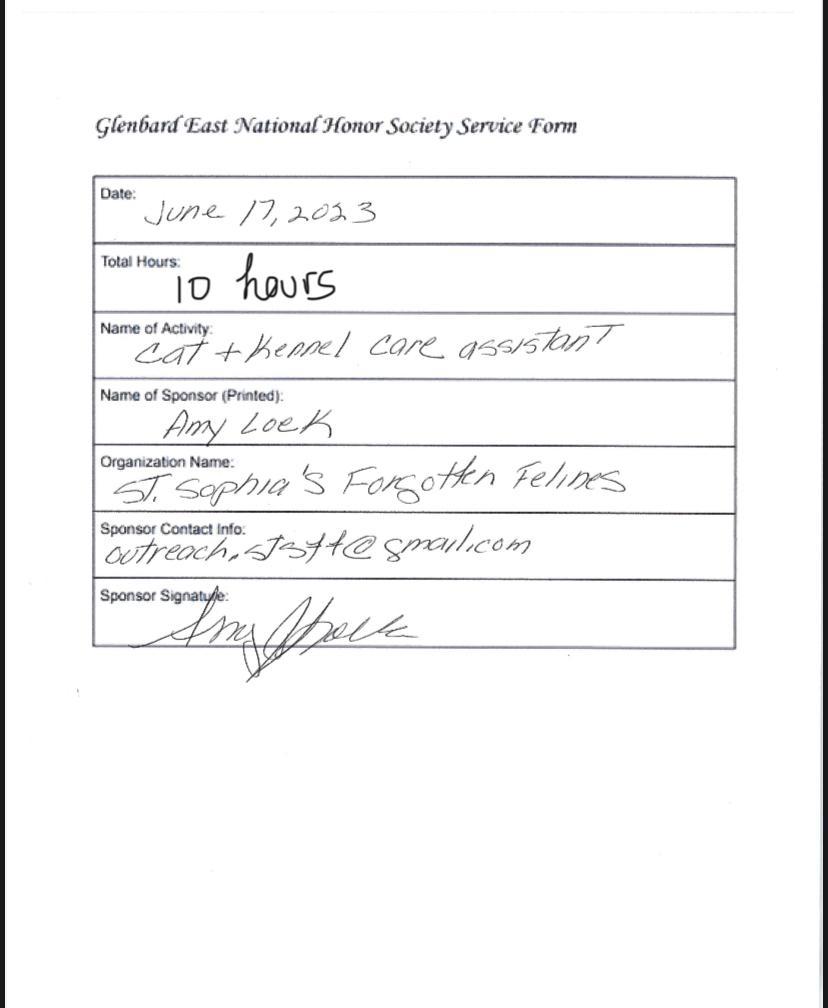 Glenbard East National Honor Society Service Form
Date:
June 17, 2023
Total Hours:
10 hours
Name of Activity:
Cat + Kennel care assistant
Name of Sponsor (Printed):
Amy Loek
Organization Name:
ST. Sophia's Forgotten Felines
Sponsor Contact Info:
outreach.stsff@gmail.com
Sponsor Signature:
Amy Loek